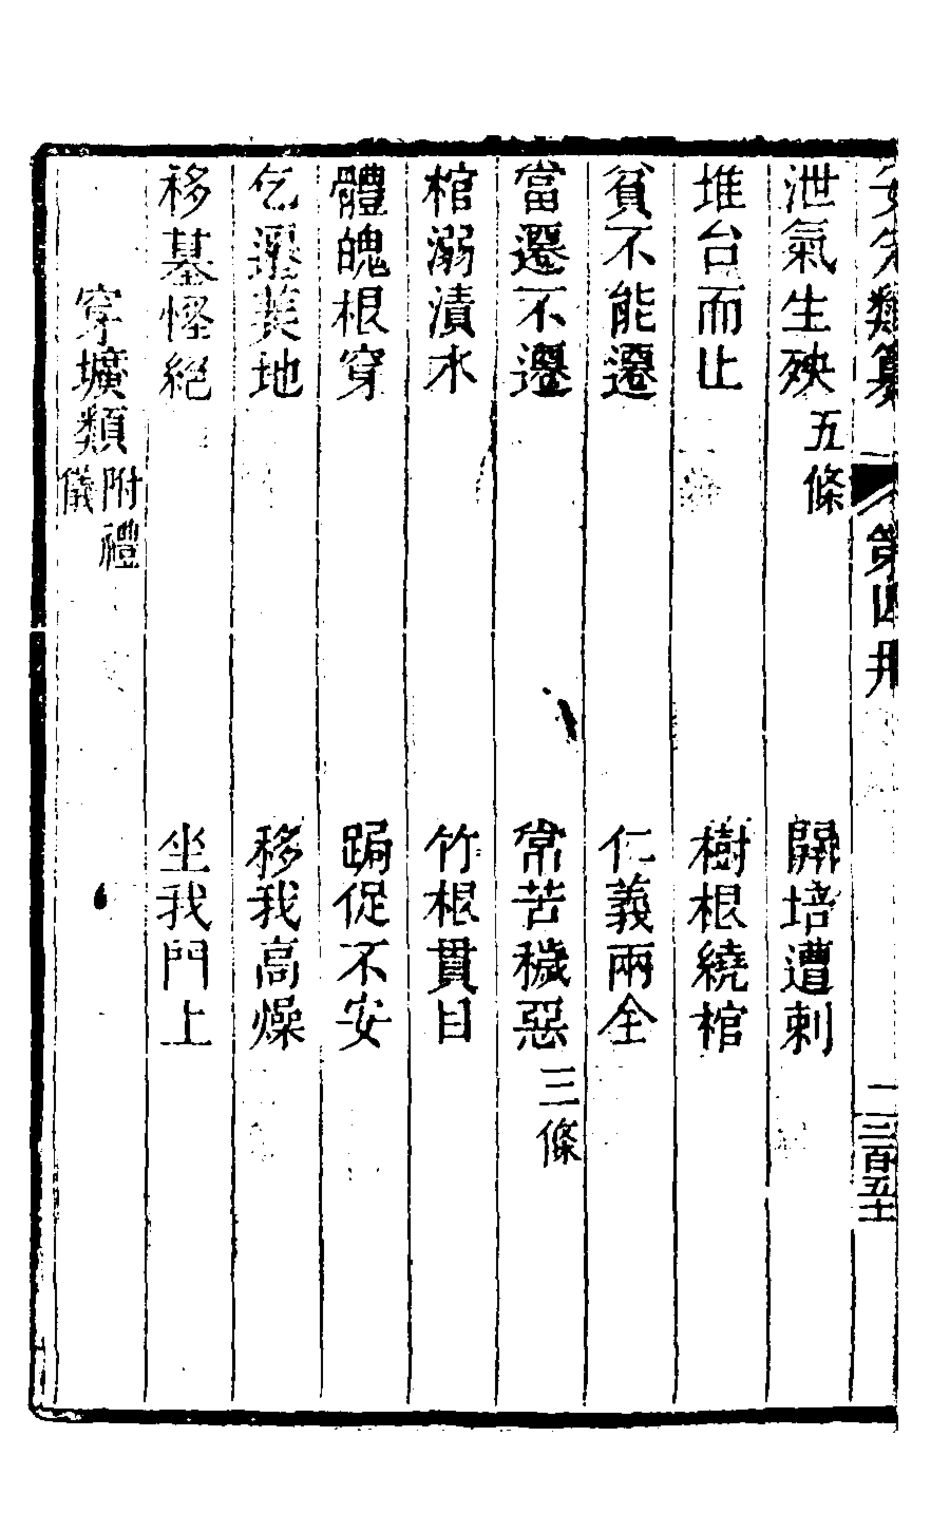 安先類纂 第四册 一 三百五十
泄氣生殃五條 開培遭剌
堆台而止 樹根繞棺
貧不能遷 仁義兩全
當遷不遷 常苦穢惡三條
棺溺漬水 竹根貫目
體魄根穿 跼促不安
乞 美地 移我高燥
移墓怪絕 坐我門上
穿壙類附禮儀